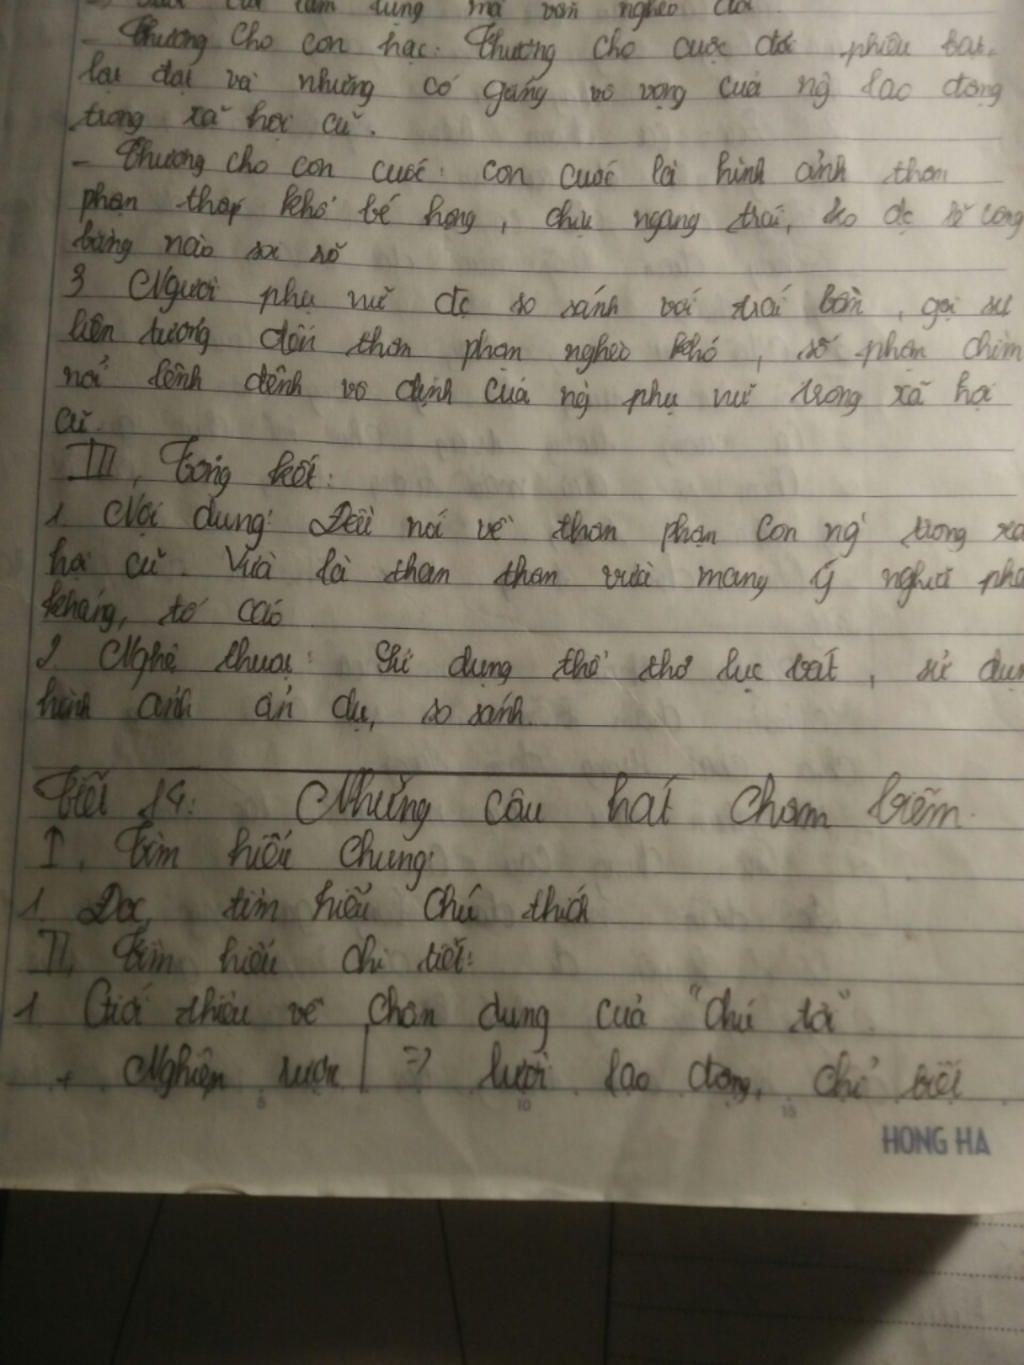 làm lụng mà vẫn nghèo đói
- Thương cho con hạc: Thương cho cuộc đời phiêu bạt,
lận đận và những cố gắng vô vọng của ng lao động
trong xã hội cũ.
- Thương cho con cuốc: con cuốc là hình ảnh thân
phận thấp khổ bé họng, chịu ngang trái, ko đc lẽ công
bằng nào soi rõ
3 Người phụ nữ đc so sánh với trái bần, gợi sự
liên tưởng đến thân phận nghèo khó, số phận chìm
nổi lênh đênh vô định của ng phụ nữ trong xã hội
cũ.
III, Tổng kết:
1. Nội dung: Đều nói về thân phận con ng trong xã
hội cũ. Vừa là than thân vừa mang ý nghĩa phả
kháng, tố cáo
2. Nghệ thuật: Sử dụng thể thơ lục bát, sử dụn
hình ảnh ẩn dụ, so sánh.
Tiết 14: Những câu hát châm biếm.
I, Tìm hiểu chung:
1. Đọc, tìm hiểu chú thích
II, Tìm hiểu chi tiết:
1 Giới thiệu về chân dung của "chú tôi"
+ Nghiện rượu | => lười lao động, chỉ biết
HONG HA